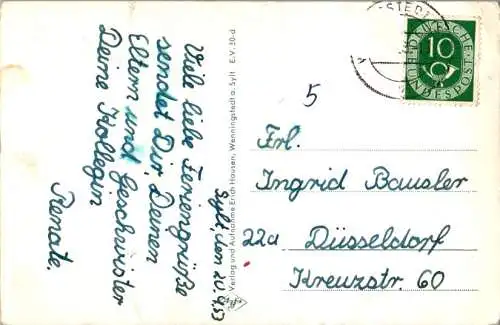 Sylt den 20.4.53
Viele liebe Feriengrüße
sendet Dir, Deinen
Eltern und Geschwister
Deine Kollegin
Renate.
Verlag und Aufnahme Erich Hausen, Wenningstedt a. Sylt E.V. 50-d
5
DEUTSCHE
BUNDESPOST
10
Frl.
Ingrid Bausler
22a Düsseldorf
Kreuzstr. 60